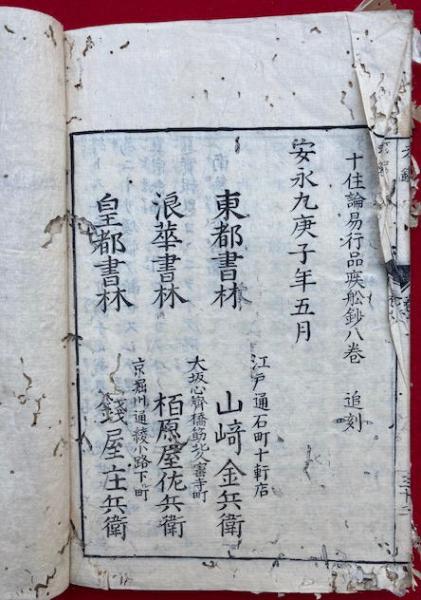 十住論易行品疾舩鈔八巻　追刻
安永九庚子年五月
江戸通石町十軒店
東都書林　山﨑金兵衛
大坂心齊橋筋北久宝寺町
浪華書林　栢原屋佐兵衛
京堀川通綾小路下ル町
皇都書林　錢屋庄兵衛